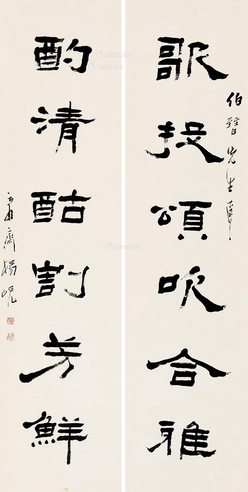 伯 先生
歌投頌吹合雅
酌清酤割芳鮮
庸齋楊峴